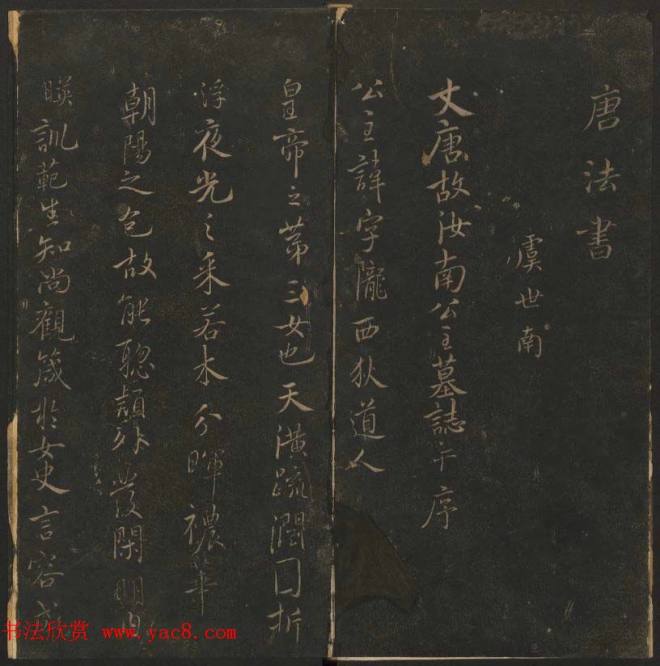 唐法書
虞世南
大唐故汝南公主墓誌并序
公主諱字隴西狄道人
皇帝之第三女也天潢疏潤圓折
浮夜光之采若木分暉穠華
朝陽之色故能聰穎外發閑明內
暎訓範生知尚觀箴於女史言容
书法欣赏 www.yac8.com